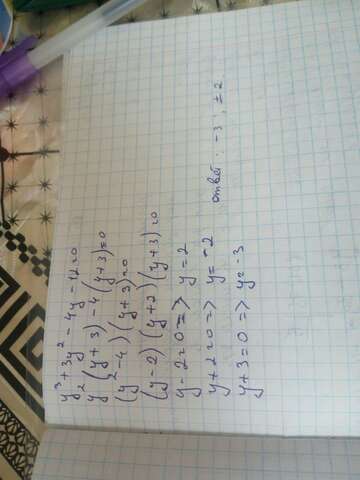 y³+3y²-4y-12=0
y²(y+3)-4(y+3)=0
(y²-4)(y+3)=0
(y-2)(y+2)(y+3)=0
y-2=0=> y=2
y+2=0=> y=-2
y+3=0=> y=-3
ответ: -3, ±2